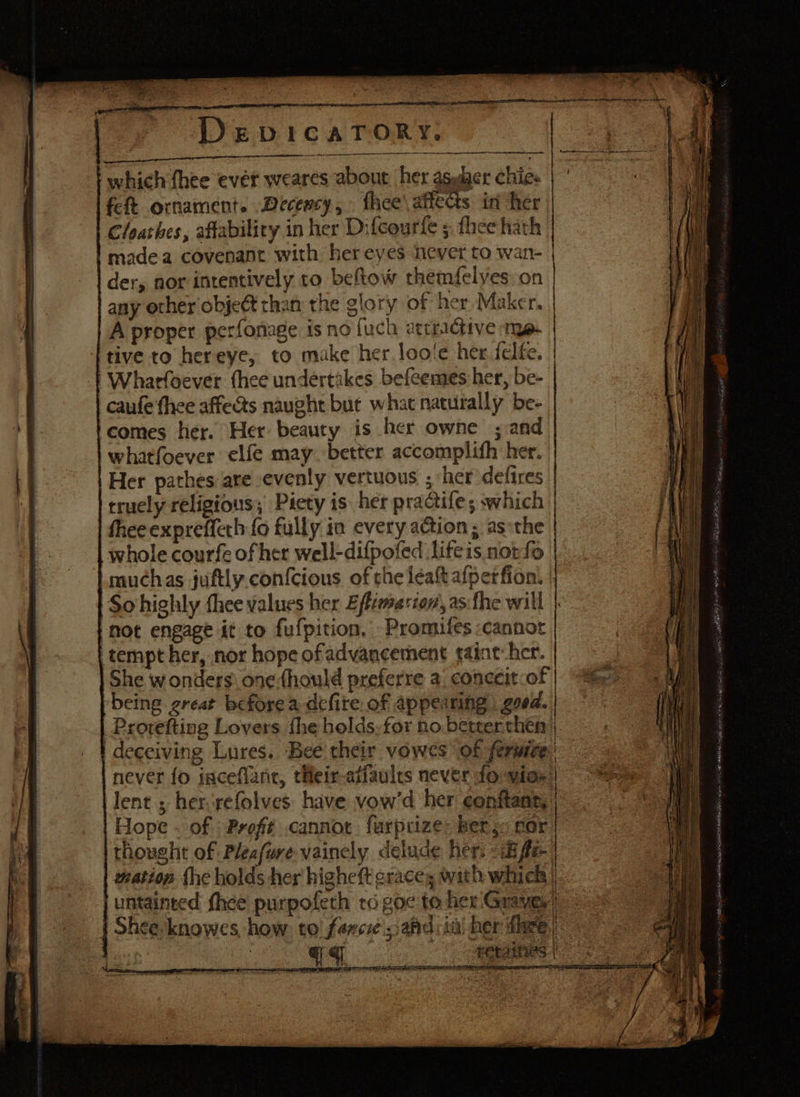 DEDICATORY.
which ſhee ever weares about her as her chie-
feſt ornament. Decency, ſhee affects in her
Cloathes, affability in her Diſcourſe ; ſhee hath
made a covenant with her eyes never to wan-
der, nor intentively to beſtow themſelves on
any other object than the glory of her Maker.
A proper perſonage is no ſuch attractive mo-
tive to her eye, to make her looſe her ſelfe.
Whatſoever ſhee undertakes beſeemes her, be-
cauſe ſhee affects naught but what naturally be-
comes her. Her beauty is her owne ; and
whatſoever elſe may better accompliſh her.
Her pathes are evenly vertuous ; her deſires
truely religious ; Piety is her practiſe; which
ſhee expreſſeth ſo fully in every action ; as the
whole courſe of her well-diſpoſed life is not ſo
much as juſtly conſcious of the leaſt aſperſion.
So highly ſhee values her Eſtimation, as ſhe will
not engage it to ſuſpition. Promiſes cannot
tempt her, nor hope of advancement taint her.
She wonders one ſhould preferre a conceit of
being great before a deſire of appearing good.
Proteſting Lovers ſhe holds for no better then
deceiving Lures. Bee their vowes of ſervice
never ſo inceſſant, their aſſaults never ſo vio-
lent ; her reſolves have vow'd her conſtant,
Hope of Profit cannot ſurprize her, nor
thought of Pleaſure vainely delude her: Eſti-
mation ſhe holds her higheſt grace, with which
untainted ſhee purpoſeth to goe to her Grave.
Shee knowes how to fancie, and in her ſhee
¶¶ retaines